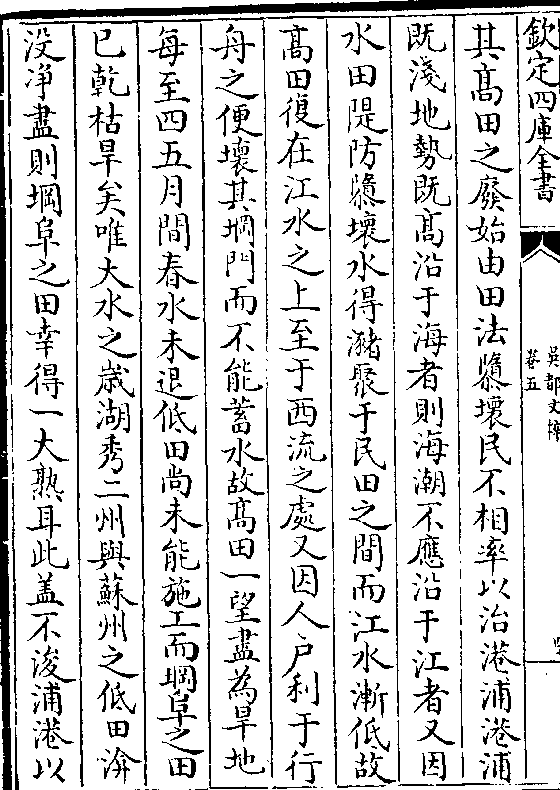 欽定四庫全書
吳都文粹
卷五
其髙田之廢始由田法隳壞民不相率以治港浦港浦
既淺地勢既髙沿于海者則海潮不應沿于江者又因
水田隄防隳壞水得瀦聚于民田之間而江水漸低故
髙田復在江水之上至于西流之處又因人户利于行
舟之便壞其堈門而不能蓄水故髙田一望盡為旱地
每至四五月間春水未退低田尚未能施工而堈阜之田
已乾枯旱矣唯大水之歲湖秀二州與蘇州之低田渰
没淨盡則堈阜之田幸得一大熟耳此盖不浚浦港以